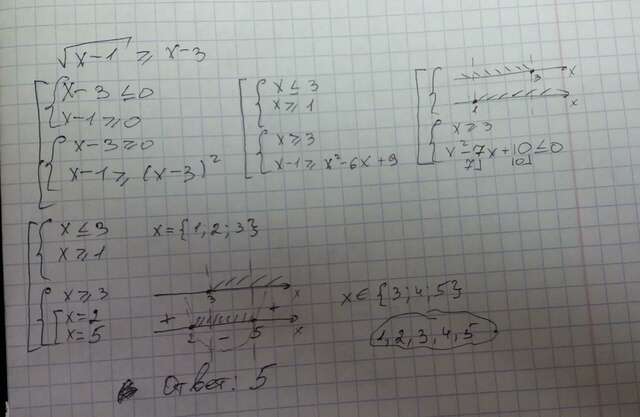 √x-1 ≥ x-3
x-3 ≤ 0
x-1 ≥ 0
x-3 ≥ 0
x-1 ≥ (x-3)²
x ≤ 3
x ≥ 1
x ≥ 3
x-1 ≥ x²-6x+9
3 x
1 x
x ≥ 3
x²-7x+10 ≤ 0
7] 10]
x ≤ 3
x ≥ 1
x={1,2;3}
x ≥ 3
x=2
x=5
3 x
+ 2 - 5 + x
x∈{3;4;5}
1,2,3,4,5
Ответ: 5